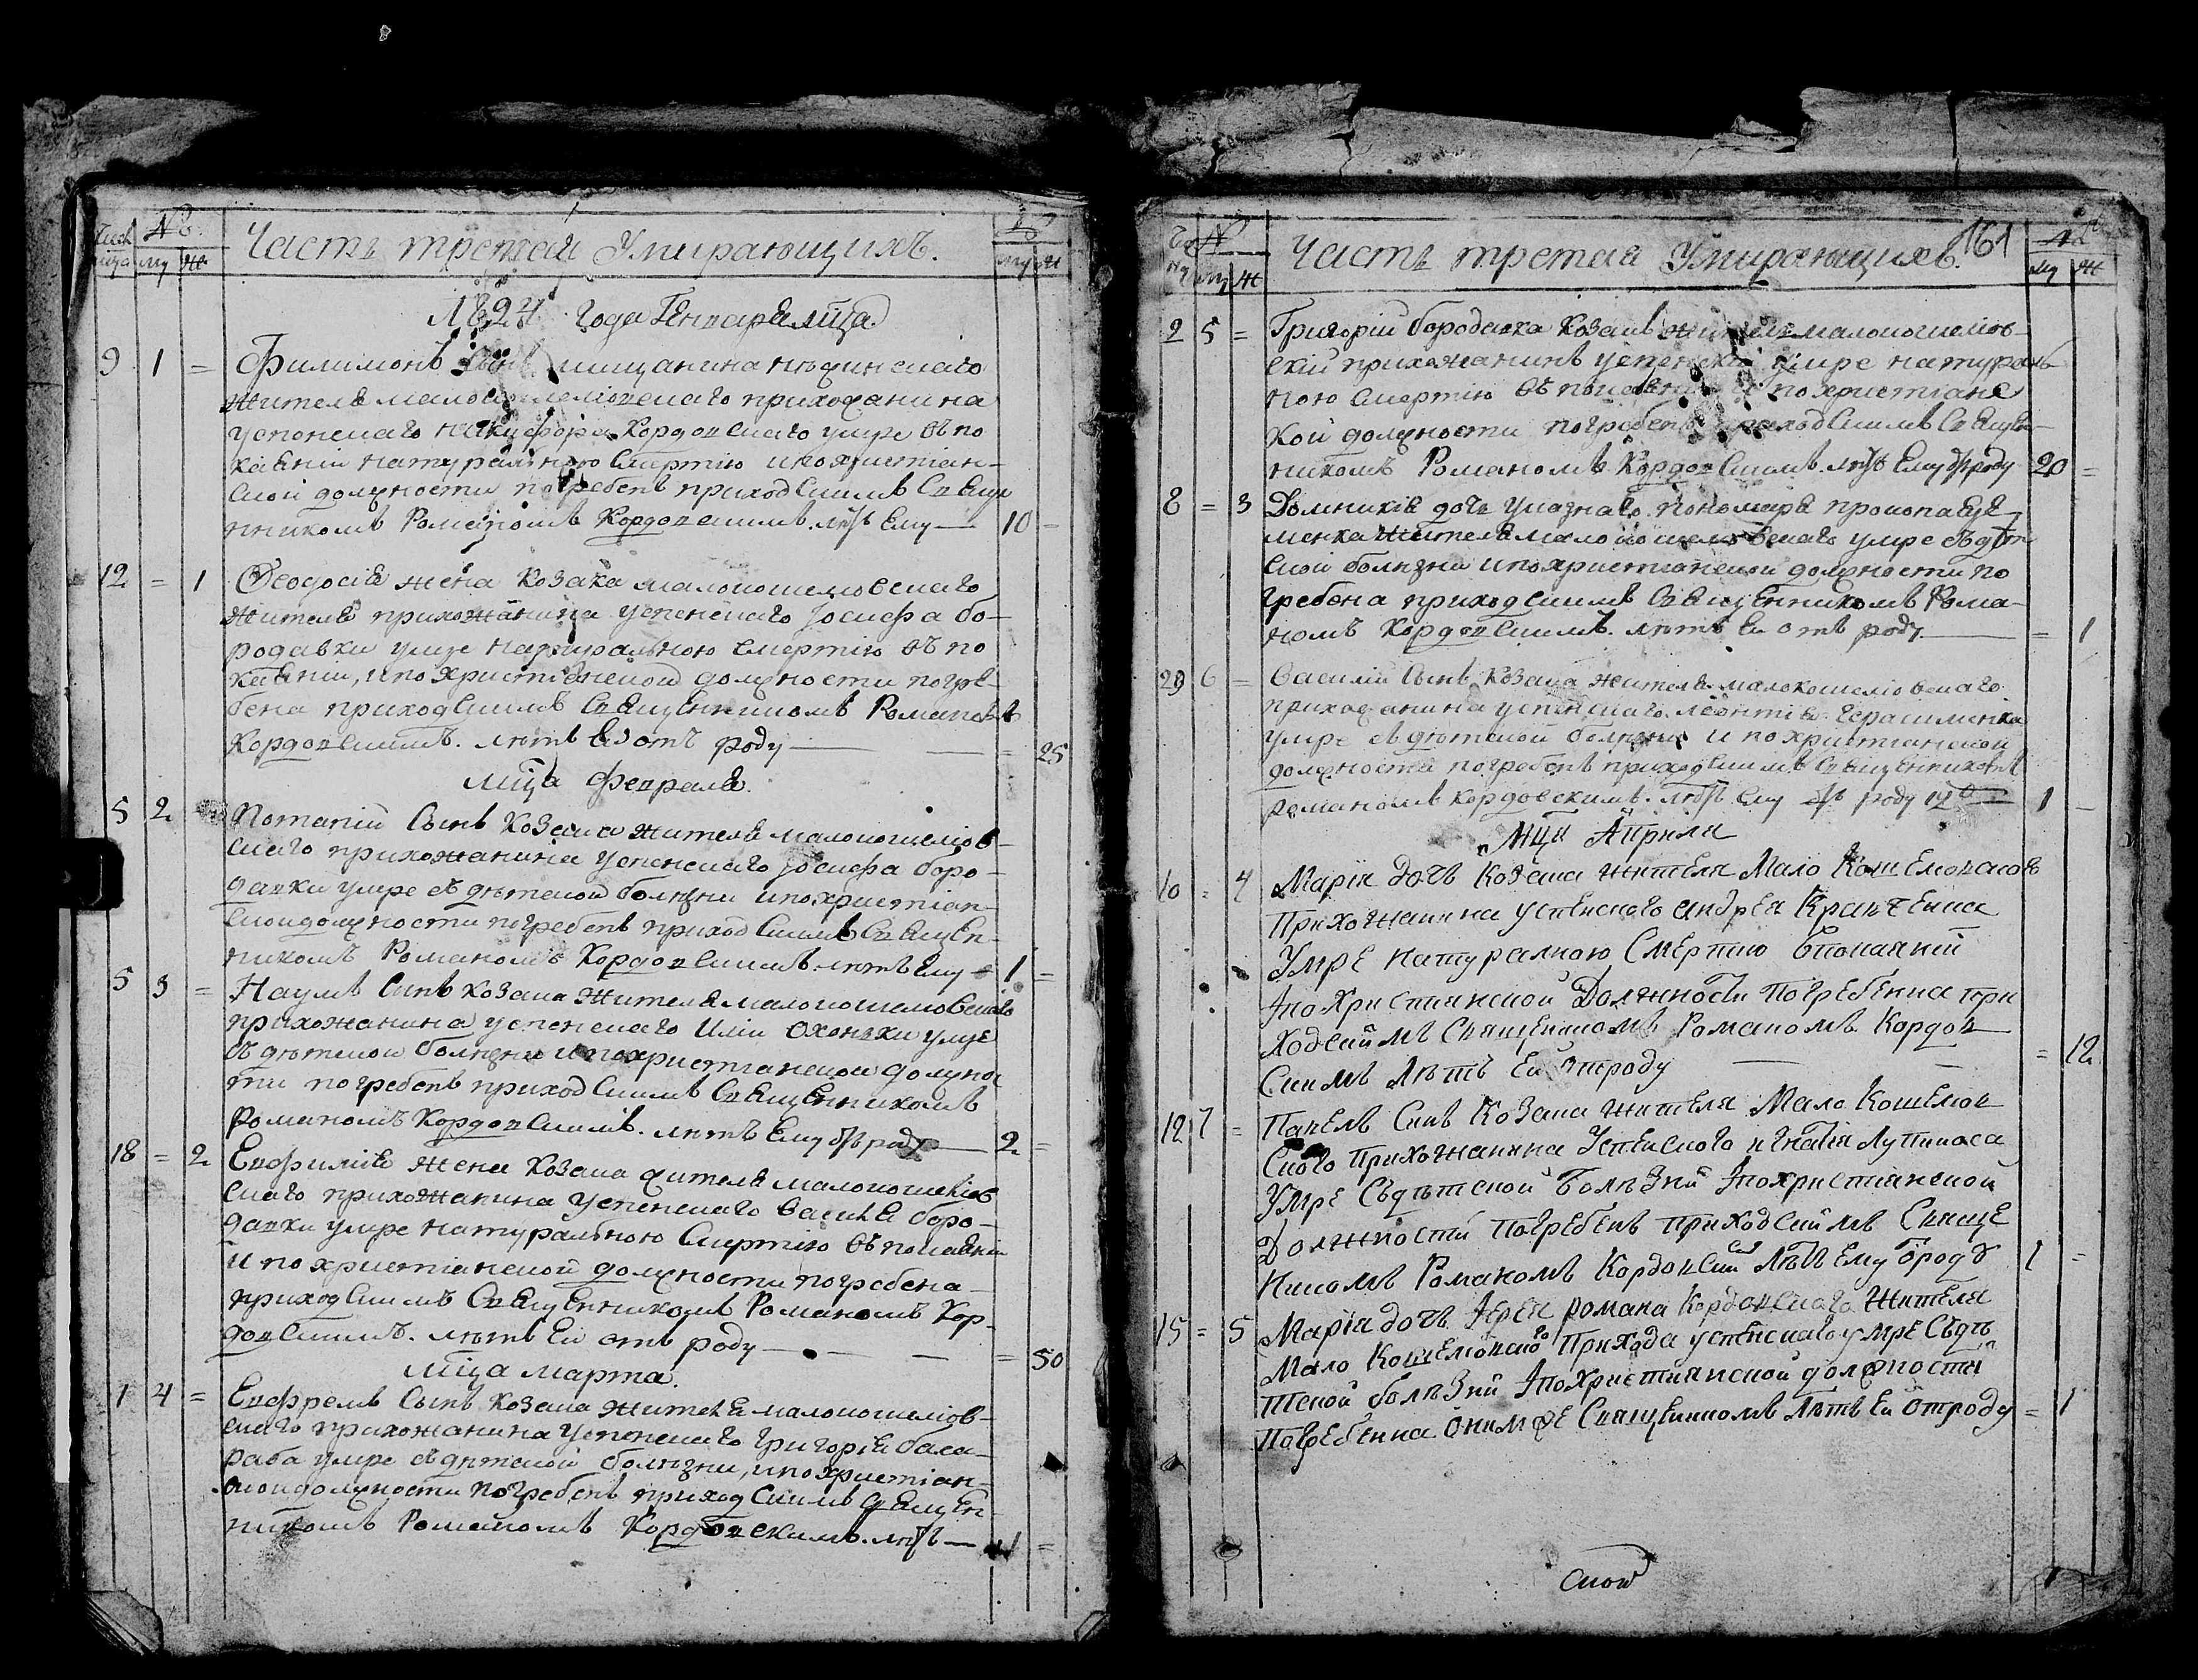 Числ мца № му ж Часть третая Умирающихъ. му ж
1824 года Генваря мца
9 1 = Филимонъ сынъ мищанина нѣжинскаго
жителя малокошелювскаго прихожанина
успенскаго Никифора Кордовскаго умре въ по
каянии натуральною смертию и похристиан-
ской должности погребенъ приходскимъ Священ
никомъ Романомъ Кордовскимъ. лѣтъ Ему — 10 =
12 = 1 Феодосия жена козака малокошеловскаго
жителя прихожанина успенскаго Иосифа бо-
родавки умре натуральною смертию въ по
каянии, и по христианской должности погре-
бена приходскимъ Священникомъ Романомъ
Кордовскимъ. лѣтъ Ей отъ роду — = 25
Мца Февраля.
5 2 Потапий Сынъ козака жителя малокошелюв-
скаго прихожанина успенскаго Иосифа боро-
давки умре въ дѣтской болѣзни и похристиан-
ской должности погребенъ приходскимъ Священ-
никомъ Романомъ Кордовскимъ лѣтъ Ему — 1 =
5 3 = Наумъ Синъ козака жителя малокошеловскаго
прихожанина успенскаго Илии Охонки умре
въ дѣтской болѣзни и похристианской должнос
ти погребенъ приходскимъ Священникомъ
Романомъ Кордовскимъ. лѣтъ Ему отъ роду — 2 =
18 = 2 Евфимия жена козака жителя малокошелюв
скаго прихожанина Успенскаго Василя боро-
давки умре натуральною Смертию въ покаянии
и по христианской должности погребена
приходскимъ Священникомъ Романомъ Кор-
довскимъ. лѣтъ Ей отъ роду — = 50
Мца марта.
1 4 = Евфремъ Сынъ козака жителя малокошелюв-
скаго прихожанина Успенскаго Григория баса-
раба умре въ дѣтской болѣзни, и похристиан-
ской должности погребенъ приходскимъ Священ-
никомъ Романомъ Кордовскимъ. лѣтъ — 1 =
№ му ж Часть третая Умирающихъ. 161 № му ж
2 5 = Григорий бородавка Козакъ житель малокошелюв-
ский прихожанинъ успенский умре натураль-
ною Смертию въ покаянии и по христианс
кой должности погребенъ приходскимъ Священ-
никомъ Романомъ Кордовскимъ. лѣтъ Ему отъ роду 20 =
8 = 3 Домникия дочь указнаго пономаря
жителя малокошеловскаго умре въ дѣт
ской болѣзни и похристианской должности по
гребена приходскимъ Священникомъ Рома-
номъ Кордовскимъ. лѣтъ Ей отъ роду — = 1
29 6 = Василий Сынъ Козака жителя малокошелювскаго
прихожанина успенскаго Леонтия Герасименка
умре въ дѣтской болѣзни и по христианской
должности погребенъ приходскимъ Священникомъ
Романомъ Кордовскимъ. лѣтъ Ему отъ роду 1 =
Мца Априля
10 = 4 Мария дочъ Козака жителя Мало Кошеловскаго
Прихожанина успенского андрея Кравченка
Умре натуралною Смертию впокаянии
Ипохристианской Должности Погребенна при
ходскимъ Священикомъ Романомъ Кордов
Скимъ Лѣтъ Ей отроду — = 12
12 7 = Павелъ Синъ Козака жителя Мало Кошелюв
Ского Прихожанина Успенского игнатия Лупикоса
Умре Въдѣтской Болѣзни Ипохристианской
Должности Погребенъ приходскимъ Свяще
никомъ Романомъ Кордовским Лѣтъ Ему ѿроду 1 =
15 = 5 Мария дочъ Иерея романа Кордовского Жителя
Мало Кошеловского Прихода успенскаго умре Въдѣ
тской болѣзни Ипохристианской должности
Погребенна Онимже Священикомъ Лѣтъ Ей отроду = 1